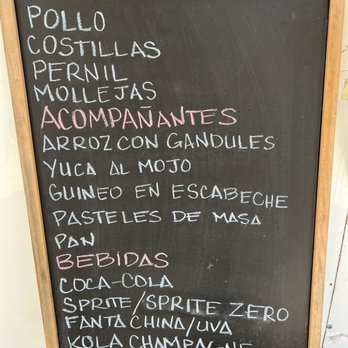 POLLO
COSTILLAS
PERNIL
MOLLEJAS
ACOMPAÑANTES
ARROZ CON GANDULES
YUCA AL MOJO
GUINEO EN ESCABECHE
PASTELES DE MASA
PAN
BEBIDAS
COCA-COLA
SPRITE/SPRITE ZERO
FANTA CHINA/UVA
KOLA CHAMPAGNE